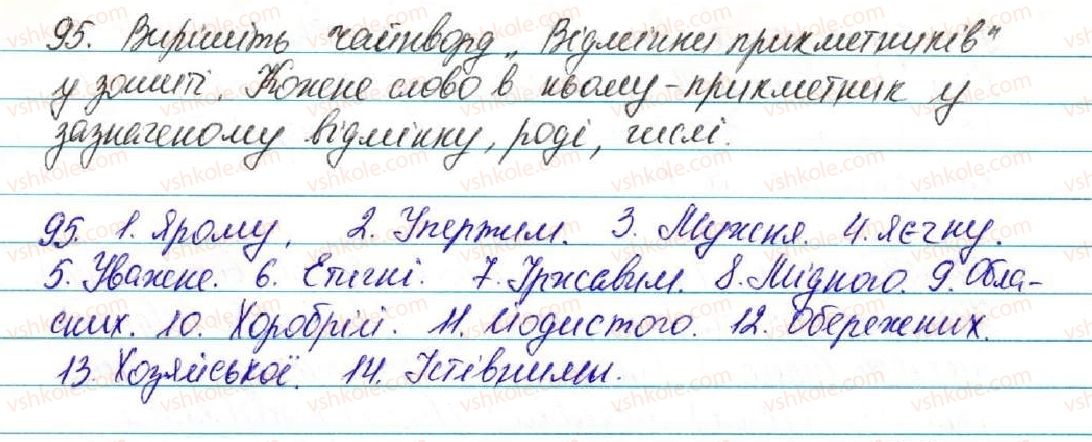 95. Вирішіть чайнворд „Відмінки прикметників"
у зошиті. Кожне слово в ньому - прикметник у
зазначеному відмінку, роді, числі.
95. 1. Ярому. 2. Упертим. 3. Мужня. 4. Яєчну.
5. Уважне. 6. Епічні. 7. Іржавим. 8. Мідного. 9. Обла-
сних. 10. Хоробрій. 11. Йодистого. 12. Обережних.
13. Хозяйської. 14. Їстівними.